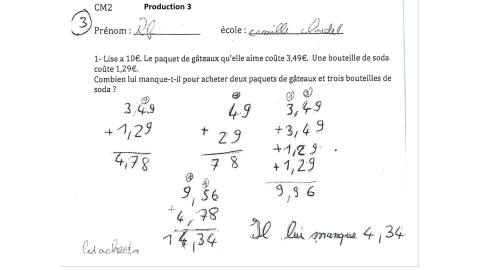 3
CM2 Production 3
Prénom : école : camille claudel
1- Lise a 10€. Le paquet de gâteaux qu'elle aime coûte 3,49€. Une bouteille de soda
coûte 1,29€.
Combien lui manque-t-il pour acheter deux paquets de gâteaux et trois bouteilles de
soda ?
3,49
+1,29
4,78
49
+ 29
7 8
3,49
+3,49
+1,29
+1,29
9,96
9,56
+4,78
14,34
Il lui manque 4,34